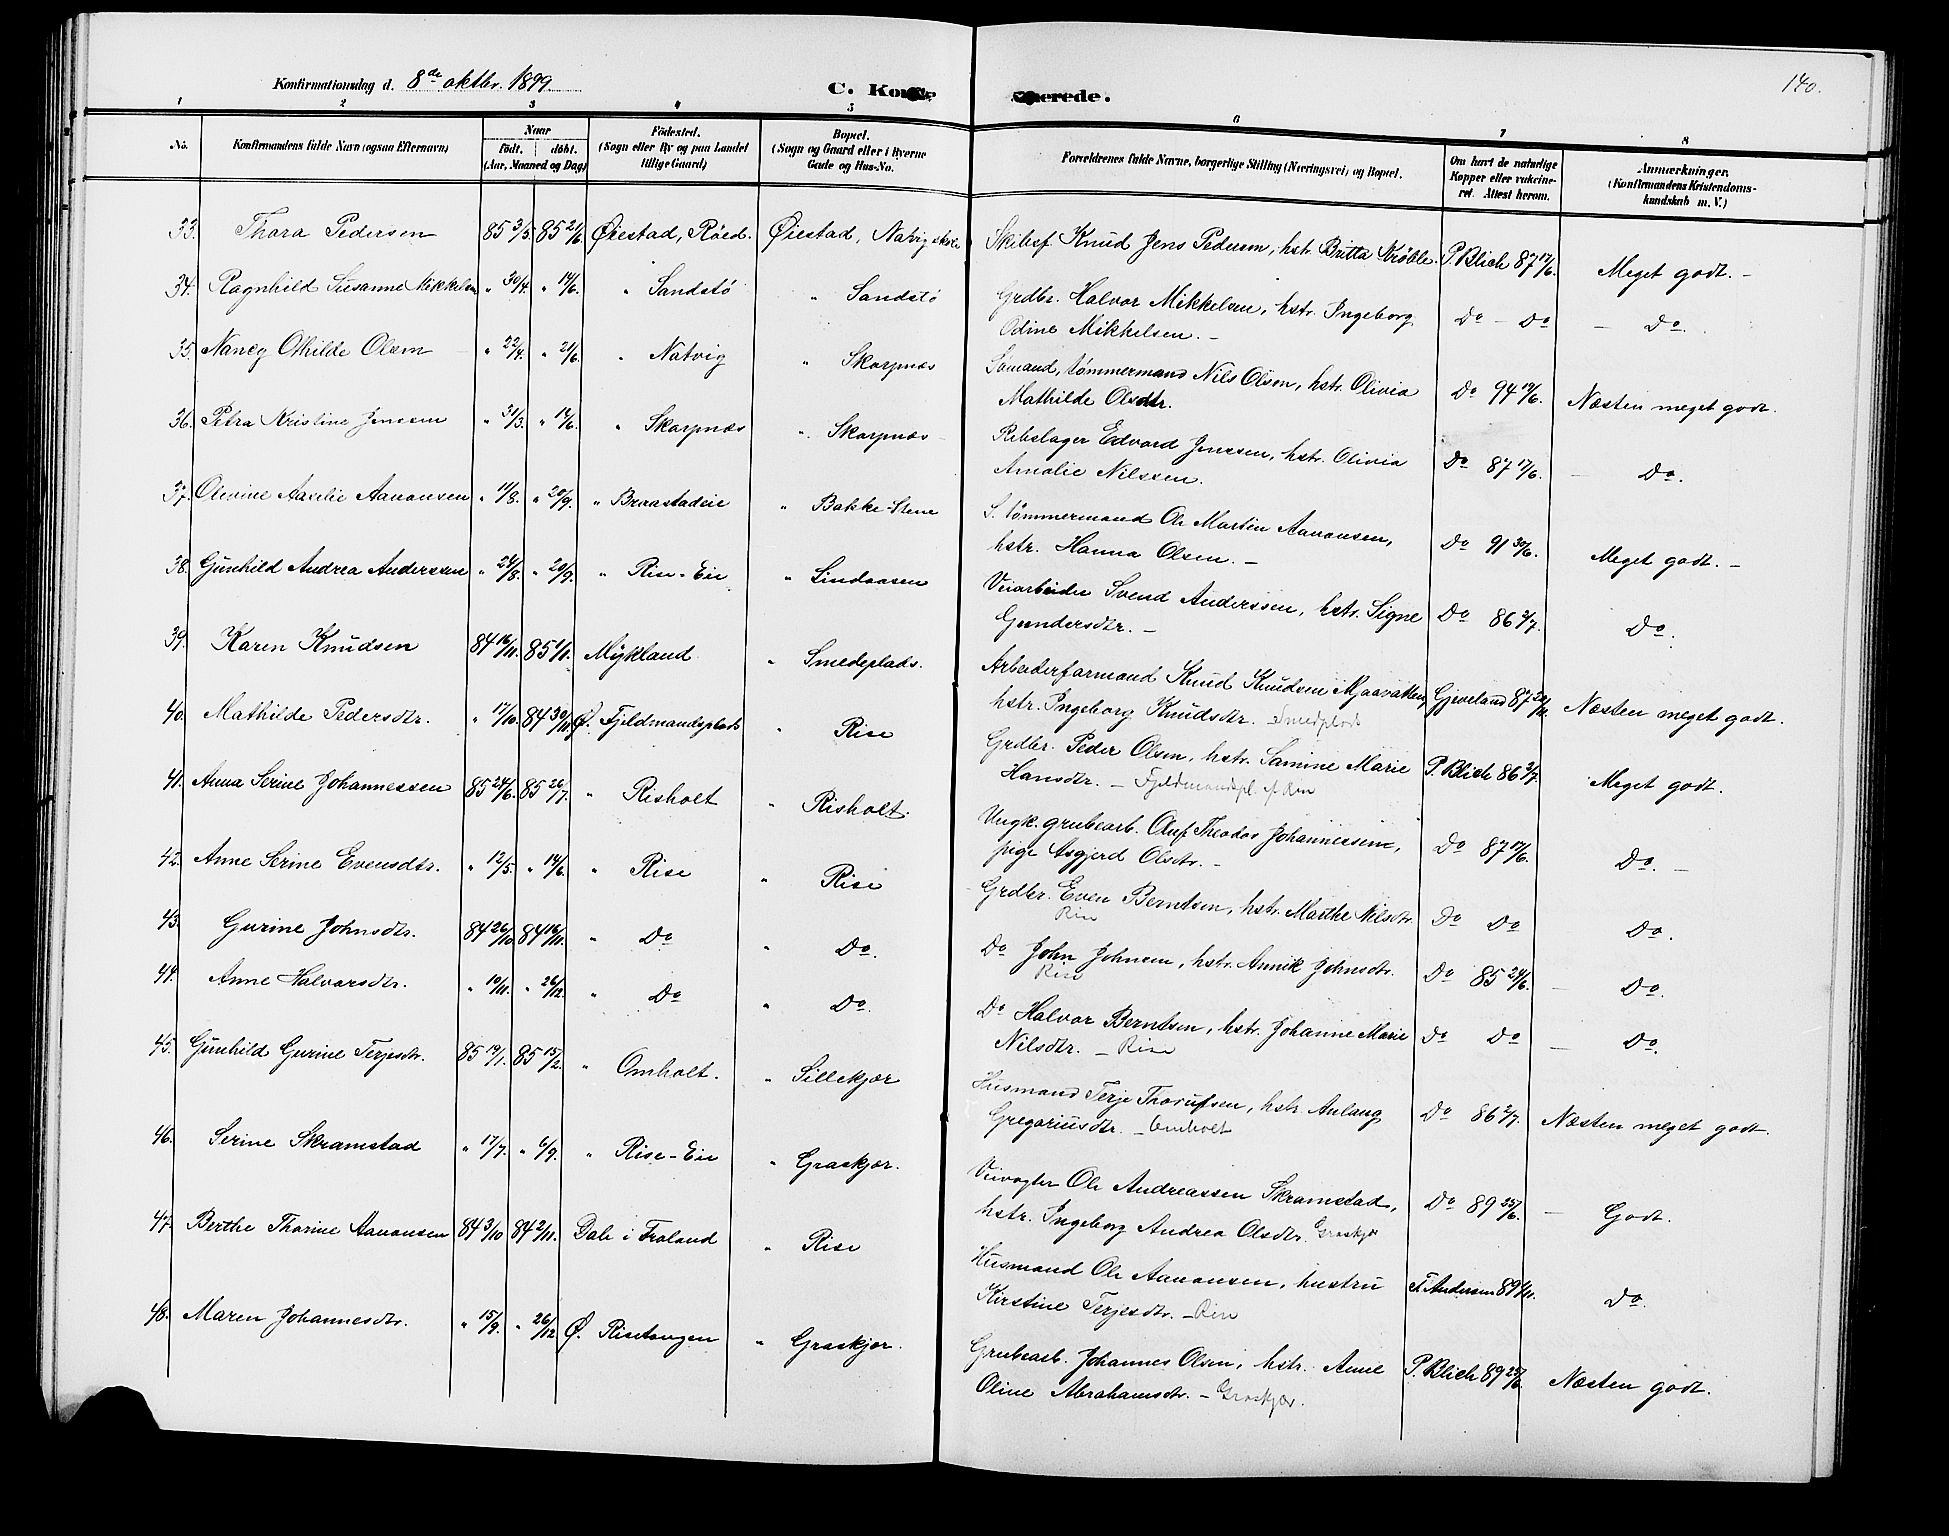 Konfirmationsdag d. 8de oktbr. 1899.
C. Konfirmerede.
140.
1 2 3 4 5 6 7 8
No.
Konfirmandens fulde Navn (ogsaa Efternavn)
Naar
født. døbt.
(Aar, Maaned og Dag)
Födested.
(Sogn eller By og paa Landet
tillige Gaard)
Bopæl.
(Sogn og Gaard eller i Byerne
Gade og Hus-No.
Forældrenes fulde Navne, borgerlige Stilling (Næringsvei) og Bopæl.
Om havt de naturlige
Kopper eller vakcine-
ret. Attest herom.
Anmærkninger.
(Konfirmandens Kristendoms-
kundskab m. V.)
33. Thora Pedersen 85 3/5. 85 21/6. Øiestad, Röed. Øiestad, Natvig skole Skibsf. Knud Jens Pedersen, hstr. Britta Kröble. P. Blich 87 17/6. Meget godt. –
34. Ragnhild Susanne Mikkelsen " 30/4. " 14/6. " Sandstö " Sandstö Grdbr. Halvor Mikkelsen, hstr. Ingeborg
Odine Mikkelsen. – Do – Do – Do.
35. Nancy Othilde Olsen " 22/4. " 21/6. " Natvig " Skarpnæs Sömand, tömmermand Nils Olsen, hstr. Olivia
Mathilde Olsdtr. Do 94 19/6. Næsten meget godt.
36. Petra Kristine Jensen " 31/3. " 14/6. " Skarpnæs " Skarpnæs Rebslager Edvard Jenssen, hstr. Olivia
Amalie Nilssen. Do 87 17/6. – Do.
37. Olevine Aaselie Aanonsen " 11/8. " 20/9. " Braastadeie " Bakke-Stene S. tömmermand Ole Martin Aanonsen,
hstr. Hanna Olsen. – Do 91 30/6. Meget godt. –
38. Gunhild Andrea Anderssen " 24/8. " 20/9. " Rise-Eie " Lindaasen Veiarbeider Svend Anderssen, hstr. Signe
Gundersdtr. – Do 86 2/7. Do.
39. Karen Knudsen 84 16/11. 85 1/1. Mykland " Smedeplads. Arbeiderformand Knud Knudsen Mjaavatten,
hstr. Ingeborg Knudsdtr. Smedplads Gjeveland 87 21/11. Næsten meget godt.
40. Mathilde Pedersdtr. " 17/10. 84 30/11. Ø. Fjeldmandsplads " Rise Grdbr. Peder Olsen, hstr. Samine Marie
Hansdtr. – Fjeldmandspl. u/ Rise P. Blich 86 2/7. Meget godt.
41. Anna Serine Johannessen 85 24/6. 85 26/7. " Risholt " Risholt. Ungk. grubearb. Oluf Theodor Johannessen,
pige Asgjerd Olsdtr. – Do 87 17/6. Do. –
42. Anne Serine Evensdtr. " 12/5. " 14/6. " Rise " Rise Grdbr. Even Berntsen, hstr. Marthe Nilsdtr.
Rise Do Do Do.
43. Gurine Johnsdtr. 84 26/10. 84 16/11. " Do " Do. Do John Johnsen, hstr. Annik Johnsdtr.
Rise Do 85 24/6. – Do.
44. Anne Halvorsdtr. " 10/11. " 26/12. " Do " Do. Do Halvor Berntsen, hstr. Johanne Marie
Nilsdtr. – Rise Do Do – Do.
45. Gunhild Gurine Terjesdtr. 85 19/1. 85 15/2. " Omholt. " Sillekjær Husmand Terje Thorufsen, hstr. Anlaug
Gregoriusdtr. – Omholt Do 86 2/7. Næsten meget godt.
46. Serine Skramstad " 17/7. " 6/9. " Rise-Eie " Graskjær. Veivogter Ole Andreassen Skramstad,
hstr. Ingeborg Andrea Olsdtr. Graskjær Do 89 25/6. – Godt.
47. Berthe Thorine Aanonsen 84 3/10 84 2/11. Dale i Froland " Rise Husmand Ole Aanonsen, hustru
Kirstine Terjesdtr. – Rise F. Andersen 89 Do.
48. Maren Johannesdtr. " 15/9. " 26/12 Ø. Risetangen " Graskjær. Grubearb. Johannes Olsen, hstr. Anne
Oline Abrahamsdtr. – Graskjær. P. Blich 89 25/6. Næsten godt.